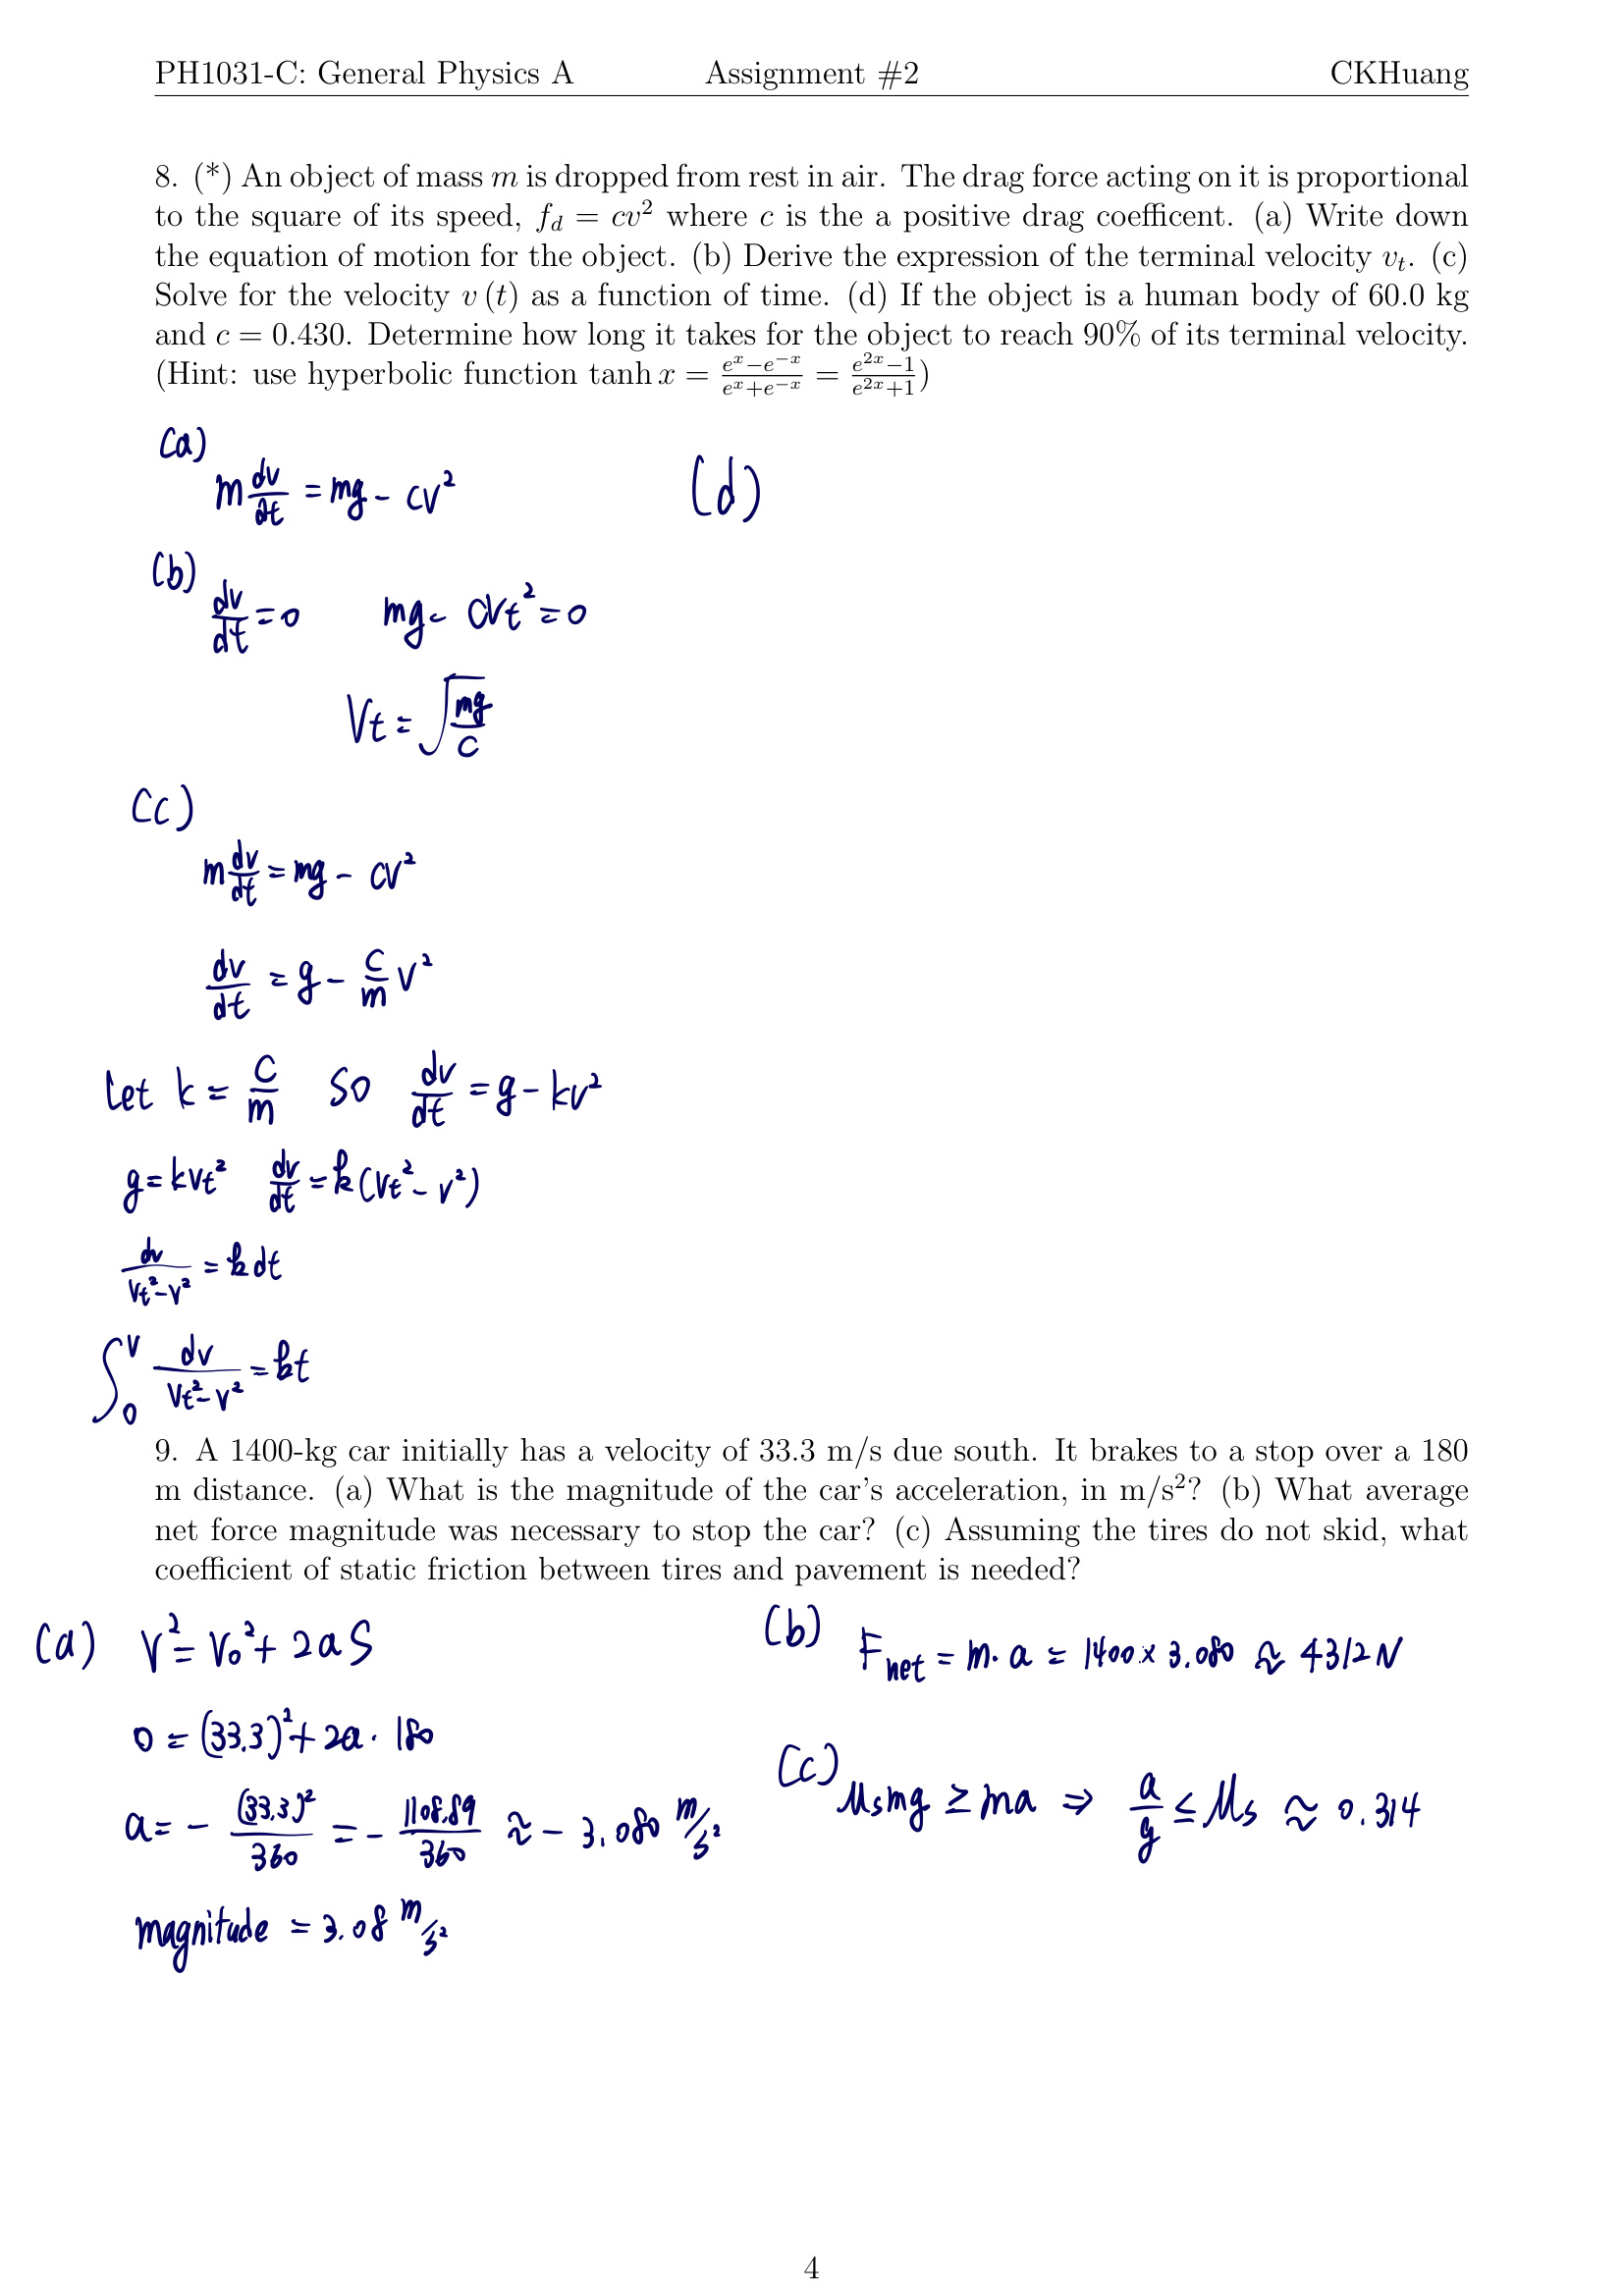 PH1031-C: General Physics A Assignment #2 CKHuang
8. (*) An object of mass m is dropped from rest in air. The drag force acting on it is proportional
to the square of its speed, f_d = cv² where c is the a positive drag coefficent. (a) Write down
the equation of motion for the object. (b) Derive the expression of the terminal velocity v_t. (c)
Solve for the velocity v (t) as a function of time. (d) If the object is a human body of 60.0 kg
and c = 0.430. Determine how long it takes for the object to reach 90% of its terminal velocity.
(Hint: use hyperbolic function tanh x = (e^x − e^{−x})/(e^x + e^{−x}) = (e^{2x} − 1)/(e^{2x} + 1))
(a)
m dv/dt = mg - cv²
(b)
dv/dt = 0 mg - cVt² = 0
Vt = √(mg/c)
(c)
m dv/dt = mg - cv²
dv/dt = g - c/m v²
Let k = c/m so dv/dt = g - kv²
g = kVt² dv/dt = k(Vt² - v²)
dv/(Vt² - v²) = k dt
∫₀^v dv/(Vt² - v²) = kt
(d)
9. A 1400-kg car initially has a velocity of 33.3 m/s due south. It brakes to a stop over a 180
m distance. (a) What is the magnitude of the car's acceleration, in m/s²? (b) What average
net force magnitude was necessary to stop the car? (c) Assuming the tires do not skid, what
coefficient of static friction between tires and pavement is needed?
(a) V² = V₀² + 2aS
0 = (33.3)² + 2a · 180
a = - (33.3)²/360 = - 1108.89/360 ≈ - 3.080 m/s²
magnitude = 3.08 m/s²
(b) F_net = m · a = 1400 × 3.080 ≈ 4312 N
(c) μs mg ≥ ma ⇒ a/g ≤ μs ≈ 0.314
4